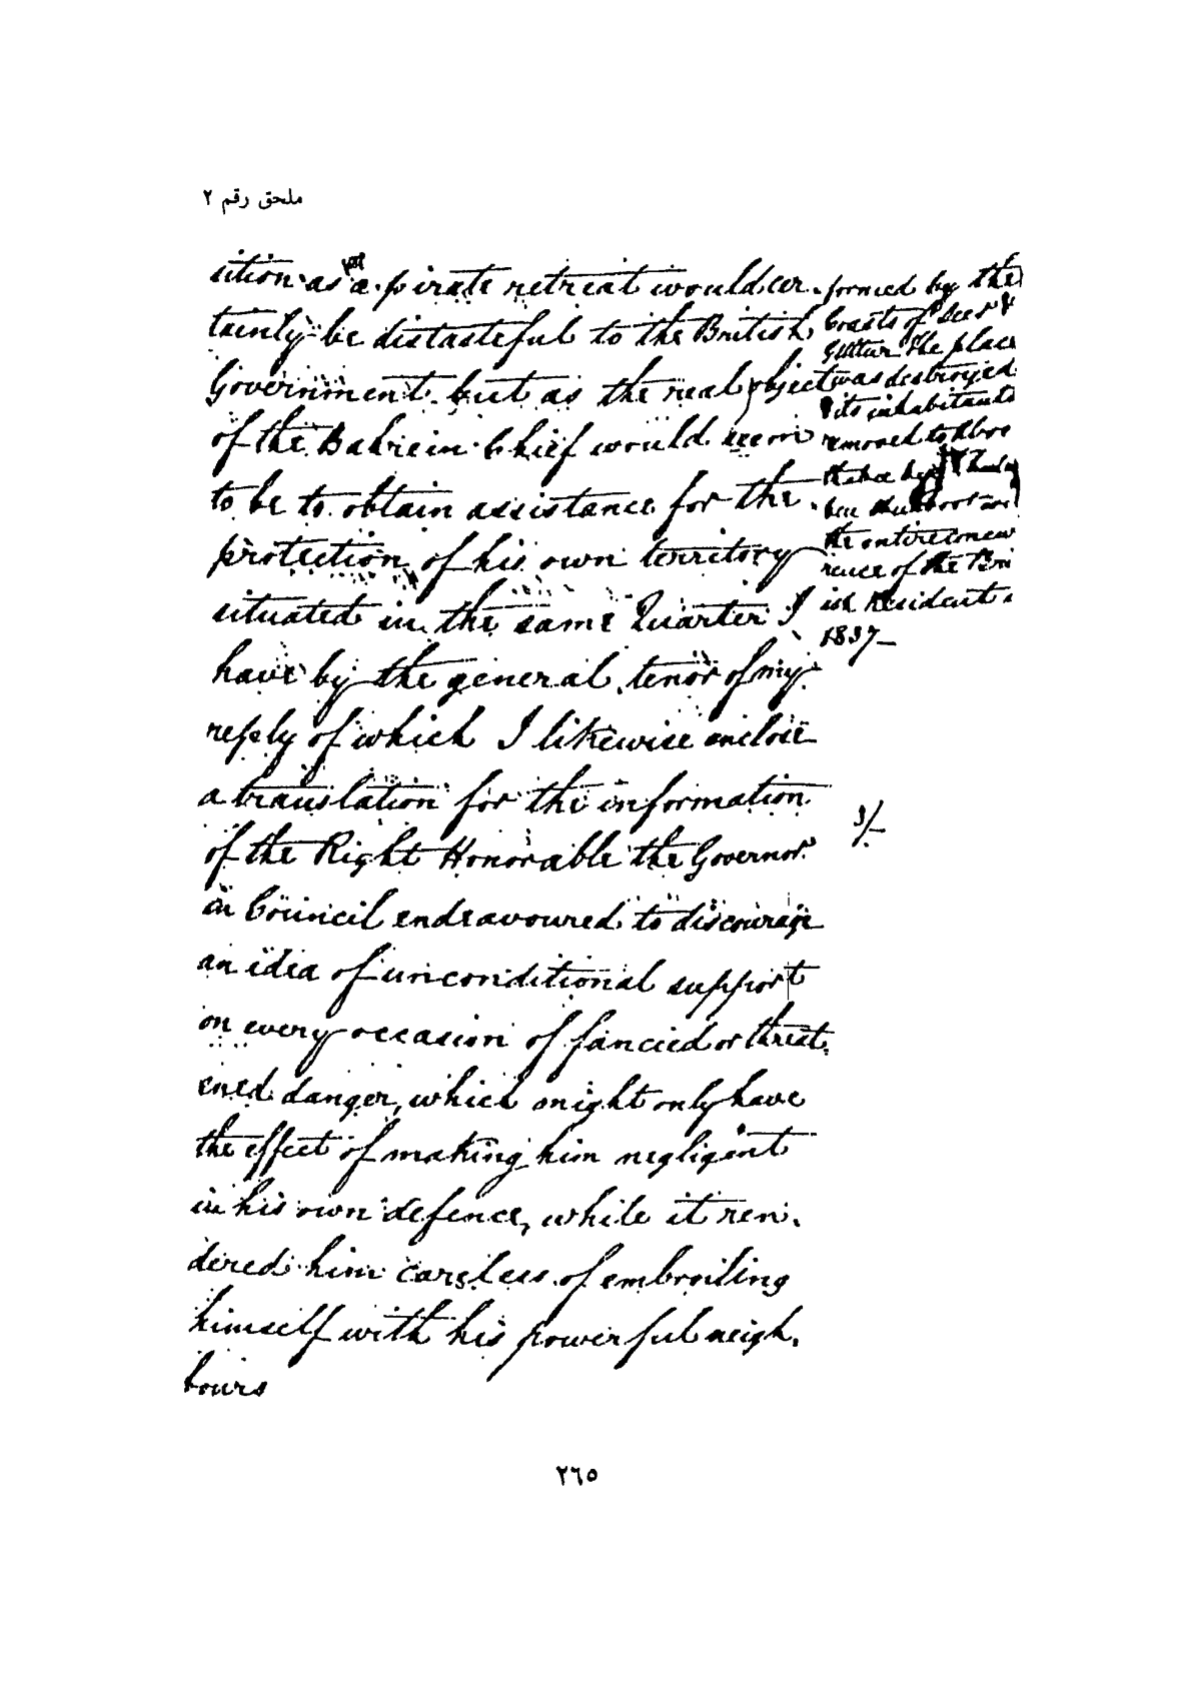 ملحق رقم ٢
sition as a pirate retreat would cer-
tainly be distasteful to the British
Government but as the real object
of the Bahrein Chief would seem
to be to obtain assistance for the
protection of his own territory
situated in the same Quarter I
have by the general tenor of my
reply of which I likewise enclose
a translation for the information
of the Right Honorable the Governor
in Council endeavoured to discourage
an idea of unconditional support
on every occasion of fancied or threat-
ened danger, which might only have
the effect of making him negligent
in his own defence, while it ren-
dered him careless of embroiling
himself with his powerful neigh-
bours
formed by the
boasts of &
Guttur The place
was destroyed
its inhabitants
removed to
the entire concur
rence of the Bri
ish Resident
1837-
3/-
٢٦٥